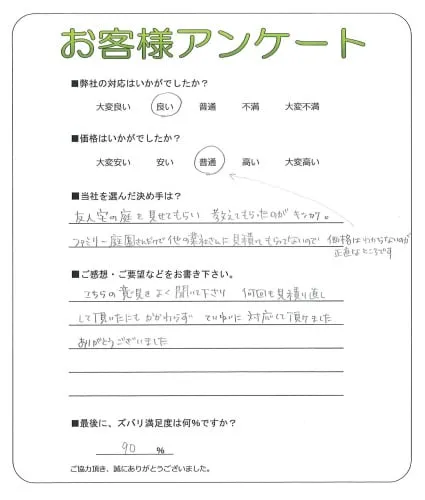 お客様アンケート
■弊社の対応はいかがでしたか?
大変良い 良い 普通 不満 大変不満
■価格はいかがでしたか?
大変安い 安い 普通 高い 大変高い
■当社を選んだ決め手は?
友人宅の庭を見せてもらい 教えてもらったのがキッカケ。
ファミリー庭園さんだけで他の業社さんに見積してもらってないので 価格はわからないのが
正直なところです
■ご感想・ご要望などをお書き下さい。
こちらの意見をよく聞いて下さり 何回も見積り直し
して頂いたにもかかわらず ていねいに対応して頂けました
ありがとうございました
■最後に、ズバリ満足度は何%ですか?
90 %
ご協力頂き、誠にありがとうございました。